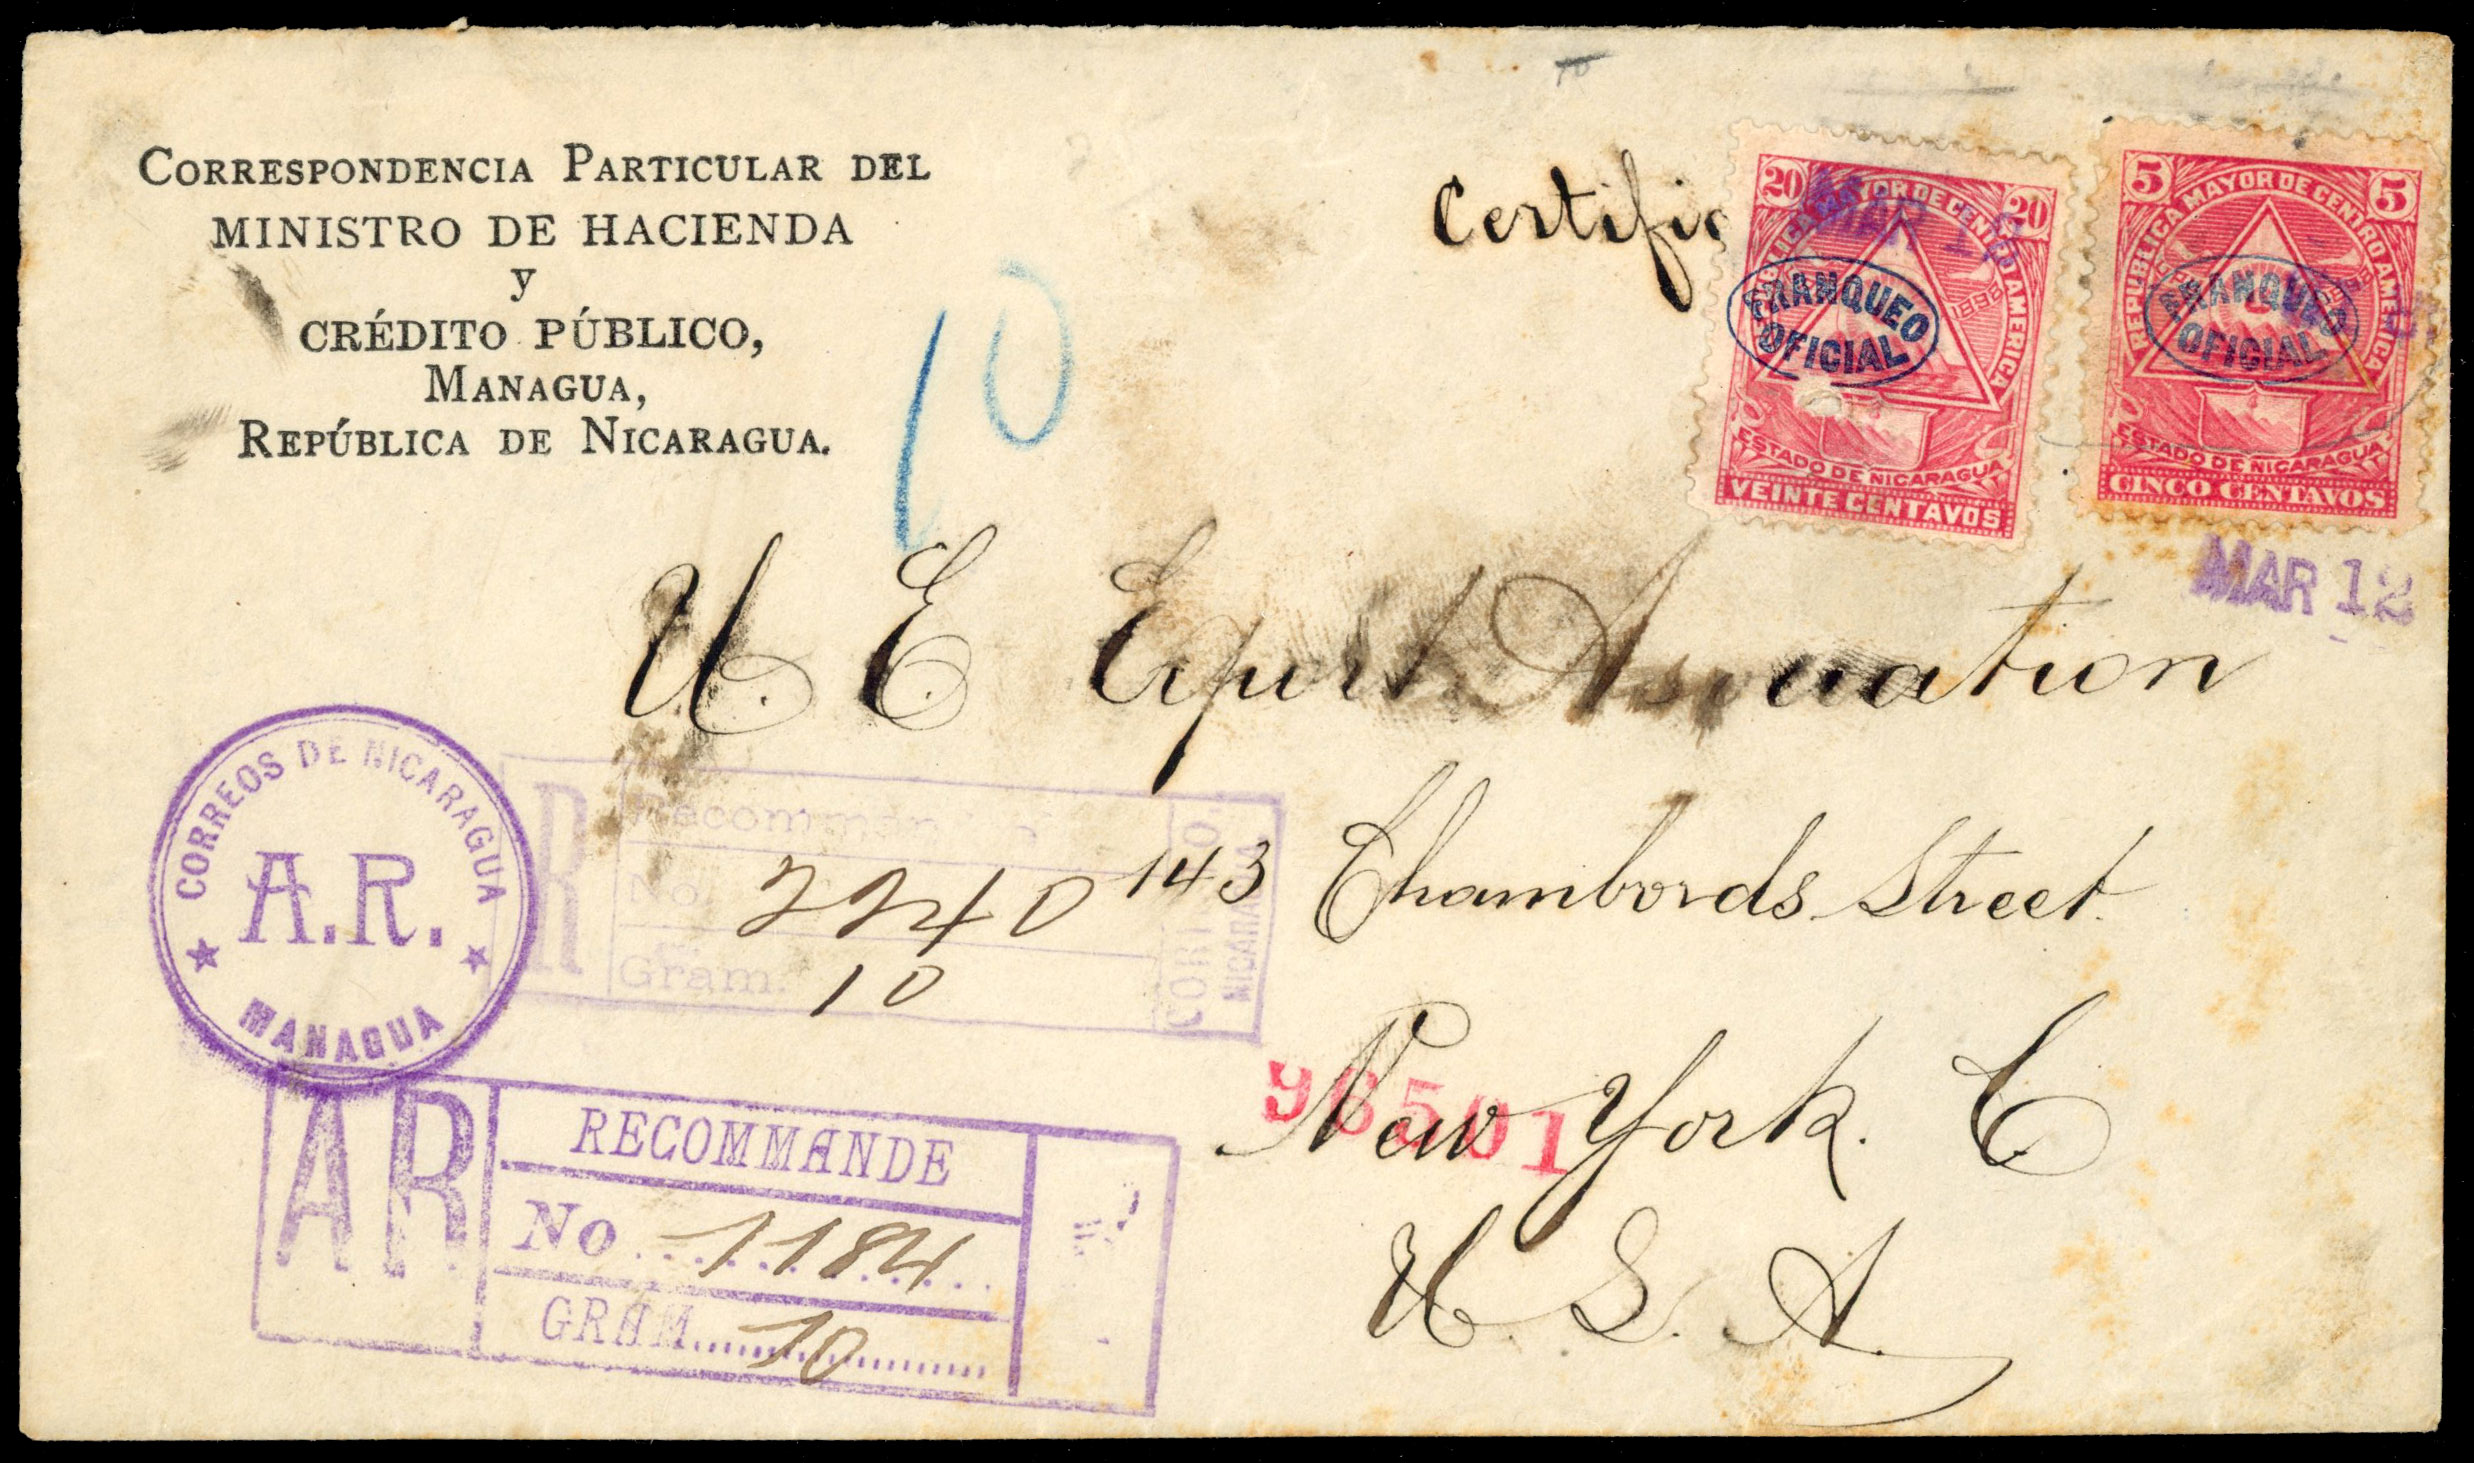 CORRESPONDENCIA PARTICULAR DEL
MINISTRO DE HACIENDA
y
CRÉDITO PÚBLICO,
MANAGUA,
REPÚBLICA DE NICARAGUA.
10
Certific
20 20
REPUBLICA MAYOR DE CENTRO AMERICA
1898
FRANQUEO
OFICIAL
ESTADO DE NICARAGUA
VEINTE CENTAVOS
MAR 12
5 5
REPUBLICA MAYOR DE CENTRO AMERICA
FRANQUEO
OFICIAL
ESTADO DE NICARAGUA
CINCO CENTAVOS
MAR 12
U. E. Export Association
143 Chambords Street
New York. C
U. S. A
96501
CORREOS DE NICARAGUA
A.R.
MANAGUA
R
No. 2240
Gram. 10
CORINTO.
NICARAGUA
AR
RECOMMANDE
No 1184
GRAM 10